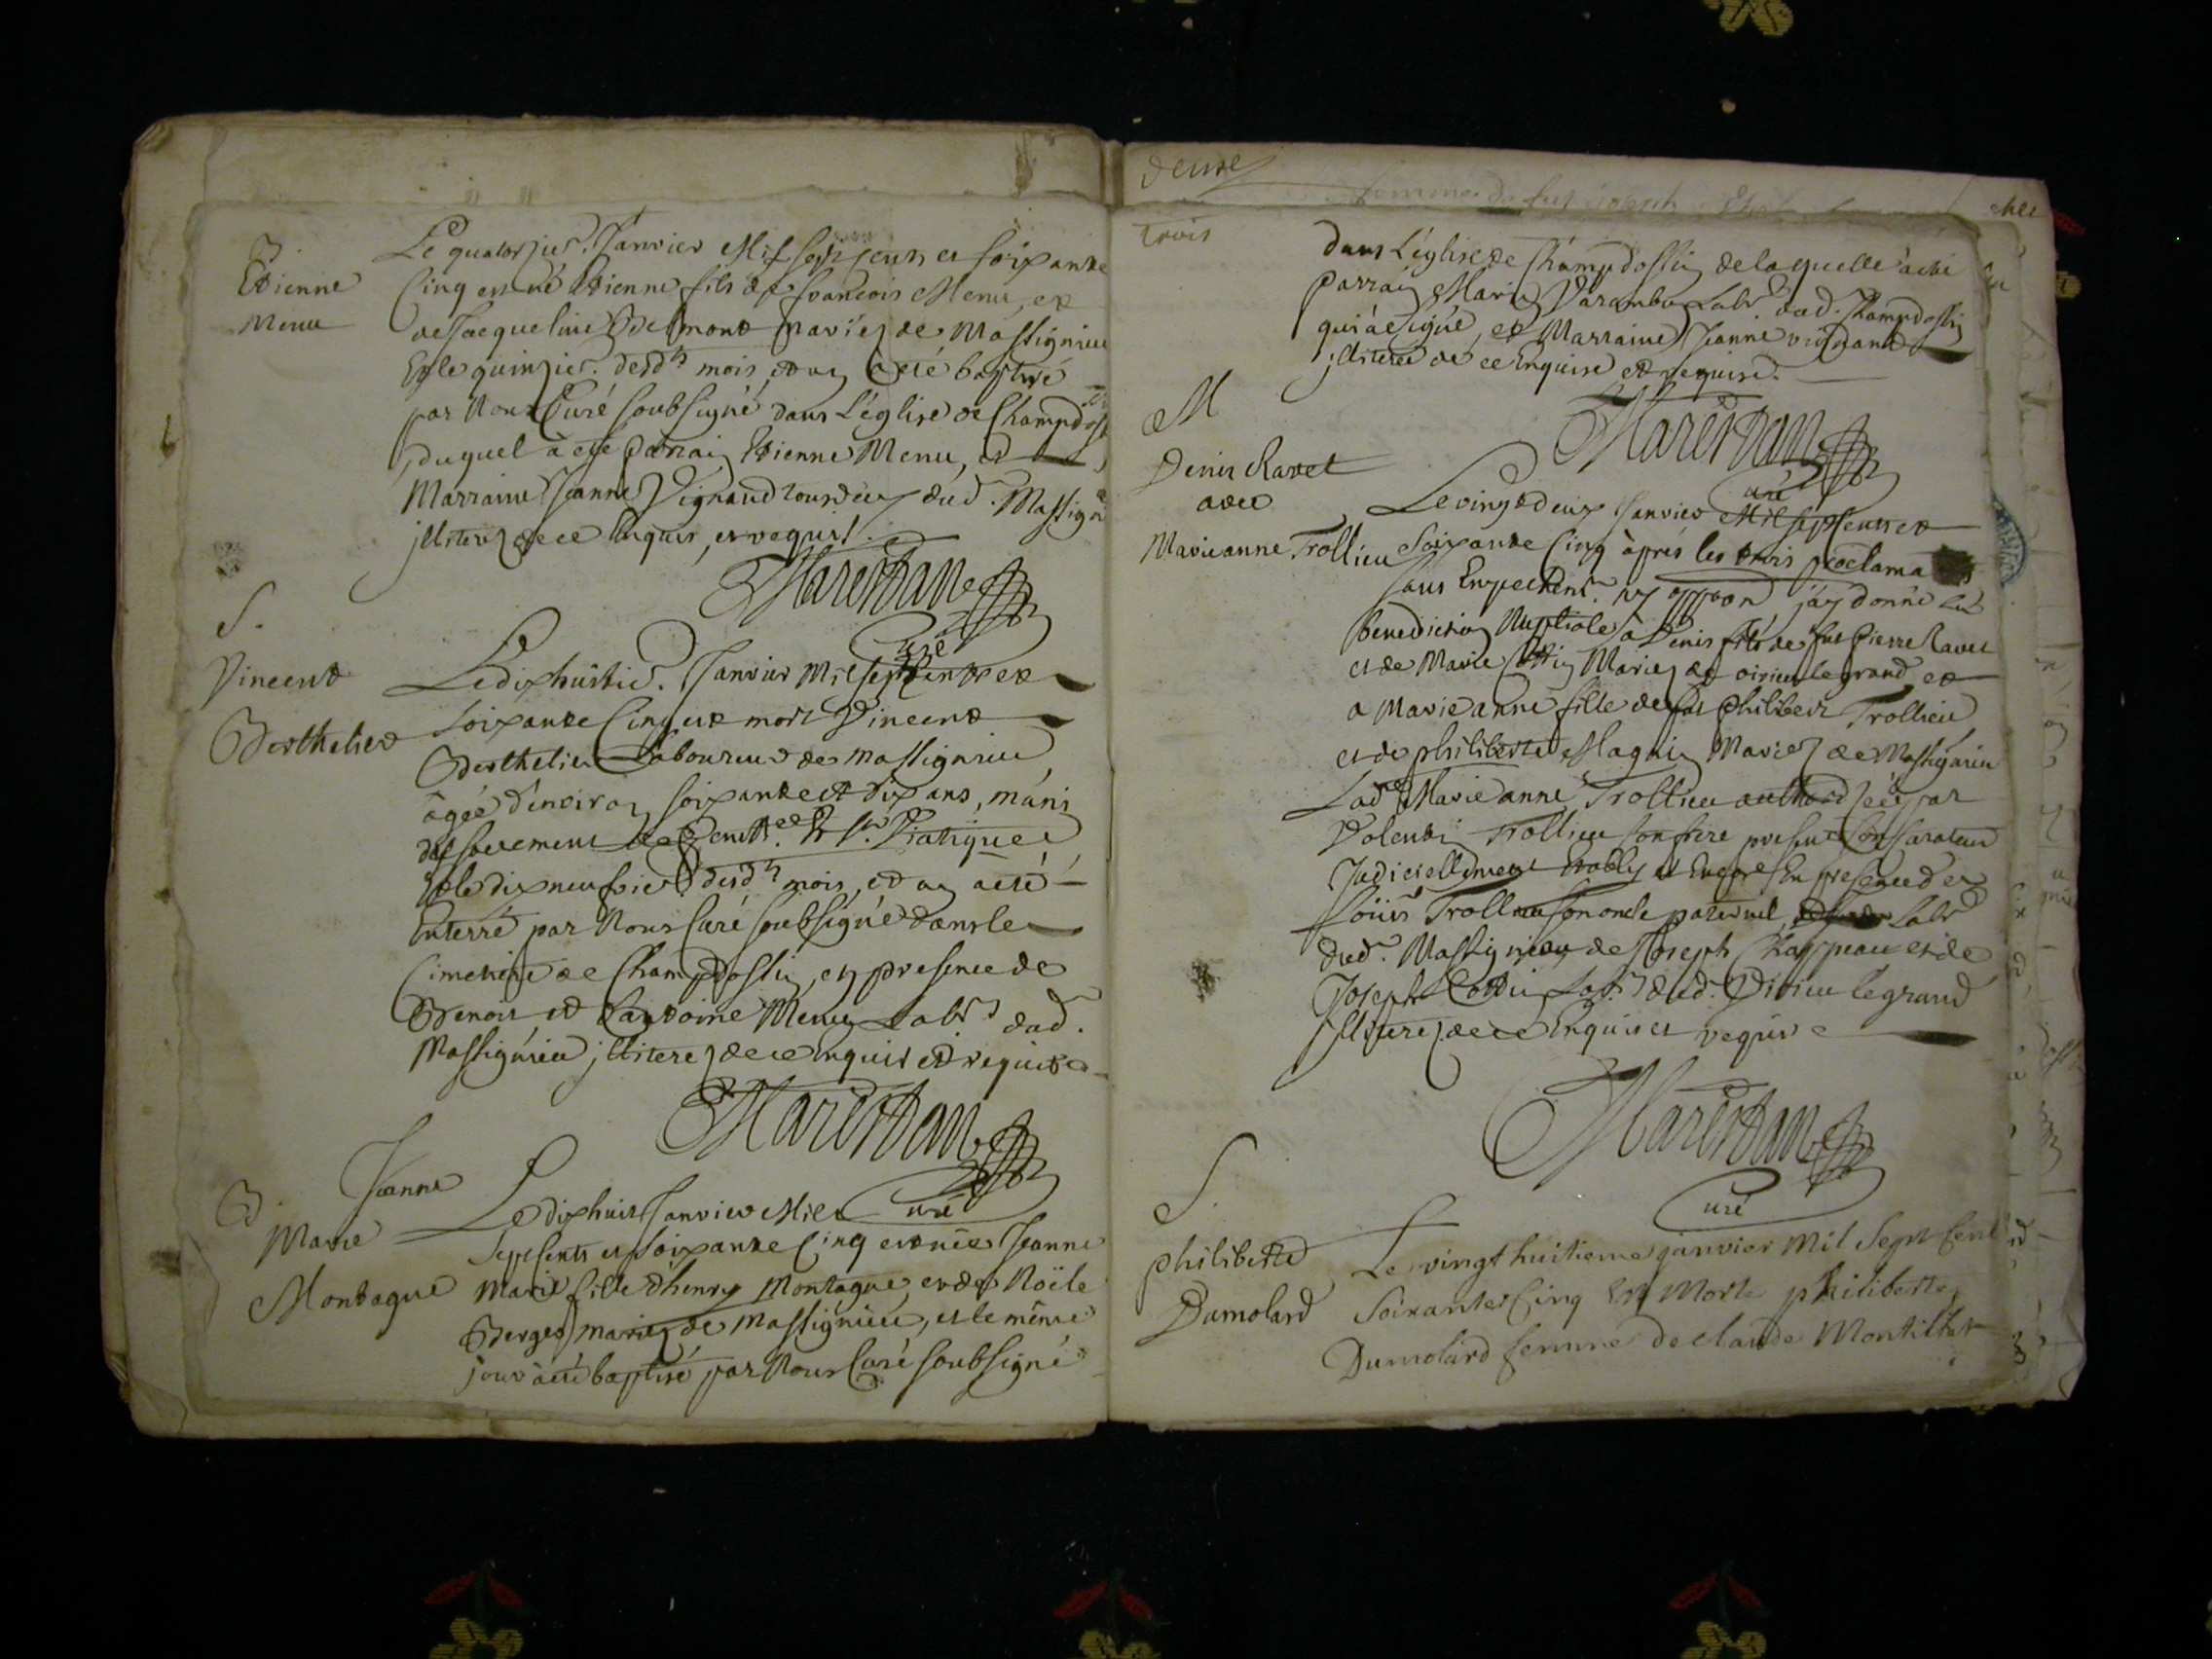 B
Etienne
Menu
Le quatorzie.r Janvier Mil sept cents et soixante
Cinq est né Etienne fils de francois Menu, et
de Jacqueline Belmont mariez de Massignieu
Et le quinzie.r desd.ts mois et an a eté baptisé
par Nous Curé soubsigné dans L'église de Champd
duquel à eté parrain Etienne Menu, et
Marraine Jeanne Vignand tous deux dud. Massign
jlliterez de ce Enquis, et requis.
Marestan
Curé
S.
Vincent
Berthelier
Le dix huitie.r Janvier Mil sept cents et
soixante Cinq est mort Vincent
Berthelier Laboureur de Massignieu
âgée d'environ soixante et dix ans, munis
des sacements de Penit.ce & S.t Viatique
Et le dix neufvie.r desd.ts mois, et an a eté
Enterré par Nous Curé soubsigné dans le
Cimetiere de Champdossin, en presence de
Benoit et d'antoine Menu Lab.rs dud.
Massignieu jlliterez de ce enquis et requis
Marestan
Curé
B.
Jeanne
Marie
Montagne
Le dix huit Janvier Mil
Sept Cents et soixante Cinq est née Jeanne
Marie fille d'henry Montagne, et de Noële
Berger mariez de Massignieu, et le même
jour à eté baptisé par Nous Curé soubsigné
deuxe
trois
dans L'église de Champdossin de laquelle a eté
parrain Marin Varambon Lab.r dud. Champdossin
qui à signé, et Marraine Jeanne vignand
jlliterée de ce Enquise et requise.
Marestan
Curé
M
Denis Ravet
avec
Marieanne Trollieu
Le vingt deux Janvier Mil sept cents et
Soixante Cinq après les trois proclama
sans Empechem.t ny oppoon jay donné la
Benediction Nuptiale à Denis fils de fut Pierre Ravet
et de Marie Cottin Mariez de virieu le grand, et
a Marie anne fille de fut Philibert Trollieu
et de philiberte Magnin Mariez de Massignieu
Lad.te Marie anne Trollieu authorizée par
Trollieu son frère present son Curateur
Judiciellement Etably et Encore En presence de
Loüis Trollieu son oncle paternel, Lab.r
dud. Massignieu de Joseph Chappeau et de
Joseph Cottin Lab.rs dud. Virieu le grand
Jlliterez de ce Enquis et requis
Marestan
Curé
S.
philiberte
Dumolard
Le vingt huitieme janvier Mil Sept Cent
Soixante Cinq Est Morte philiberte
Dumolard femme de claude Montillet